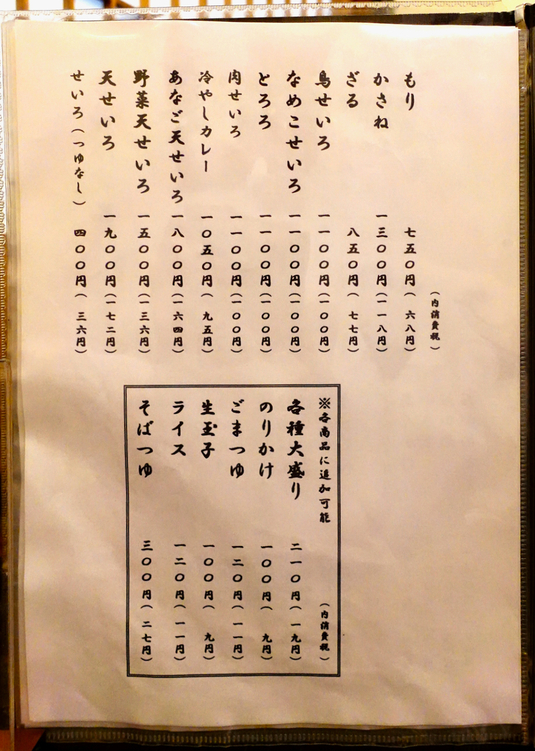 （内消費税）
もり 七五〇円（六八円）
かさね 一三〇〇円（一一八円）
ざる 八五〇円（七七円）
鳥せいろ 一一〇〇円（一〇〇円）
なめこせいろ 一一〇〇円（一〇〇円）
とろろ 一一〇〇円（一〇〇円）
肉せいろ 一一〇〇円（一〇〇円）
冷やしカレー 一〇五〇円（九五円）
あなご天せいろ 一八〇〇円（一六四円）
野菜天せいろ 一五〇〇円（一三六円）
天せいろ 一九〇〇円（一七二円）
せいろ（つゆなし） 四〇〇円（三六円）
※各商品に追加可能 （内消費税）
各種大盛り 二一〇円（一九円）
のりかけ 一〇〇円（九円）
ごまつゆ 一二〇円（一一円）
生玉子 一〇〇円（九円）
ライス 一二〇円（一一円）
そばつゆ 三〇〇円（二七円）